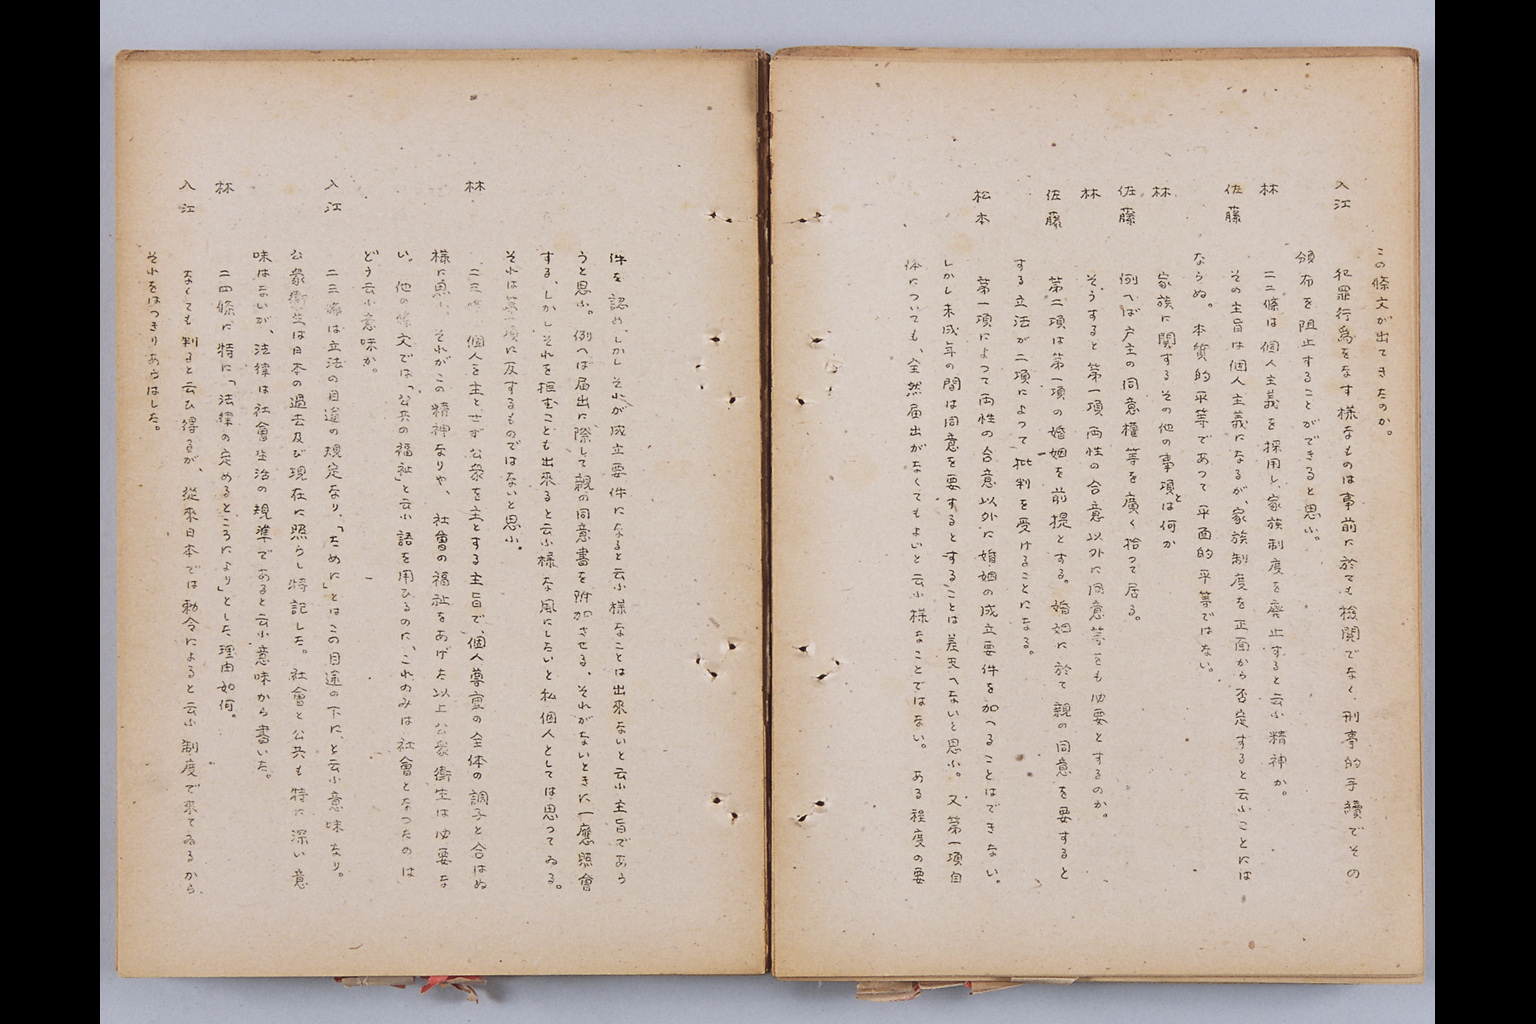 この條文が出てきたのか。
入江 犯罪行爲をなす様なものは事前に於ても檢閲でなく、刑事的手續でその
頒布を阻止することができると思ふ。
林 二二條は個人主義を採用し、家族制度を廃止すると云ふ精神か。
佐藤 その主旨は個人主義になるが、家族制度を正面から否定すると云ふことには
ならぬ。本質的平等であつて平面的平等ではない。
林 家族に関するその他の事項とは何か
佐藤 例へば戸主の同意權等を廣く拾つて居る。
林 そうすると第一項両性の合意以外に同意等をも必要とするのか。
佐藤 第二項は第一項の婚姻を前提とする。婚姻に於て親の同意を要すると
する立法が二項によつて批判を受けることになる。
松本 第一項によつて両性の合意以外に婚姻の成立要件を加へることはできない。
しかし未成年の間は同意を要するとすることは差支へないと思ふ。又第一項自
体についても、全然届出がなくてもよいと云ふ様なことではない。ある程度の要
件を認め、しかしそれが成立要件になると云ふ様なことは出來ないと云ふ主旨であら
うと思ふ。例へば届出に際して親の同意書を附加させる、それがないときに一應照會
する、しかしそれを拒むことも出來ると云ふ様な風にしたいと私個人としては思つてゐる。
それは第一項に反するものではないと思ふ。
林 二三條 個人を主とせず公衆を主とする主旨で、個人尊重の全体の調子と合はぬ
様に思ふ。それがこの精神なりや、社會の福祉をあげた以上公衆衛生は必要な
い。他の條文では「公共の福祉」と云ふ語を用ひるのに、これのみは社會となつたのは
どう云ふ意味か。
入江 二三條は立法の目途の規定なり。「ために」とはこの目途の下に、と云ふ意味なり。
公衆衛生は日本の過去及び現在に照らし特記した。社會と公共も特に深い意
味はないが、法律は社會生活の規準であると云ふ意味から書いた。
林 二四條に特に「法律の定めるところにより」とした理由如何。
入江 なくても判ると云ひ得るが、從來日本では勅令によると云ふ制度で來てゐるから、
それをはつきりあらはした。